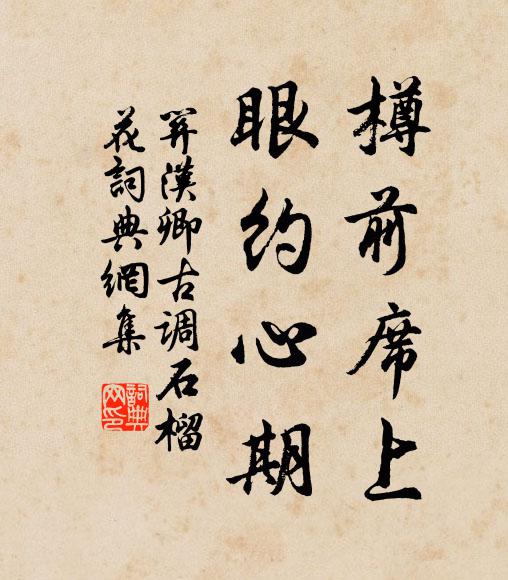 樽前席上
眼約心期
関漢卿古調石榴
花詞典網集
詞典
网印